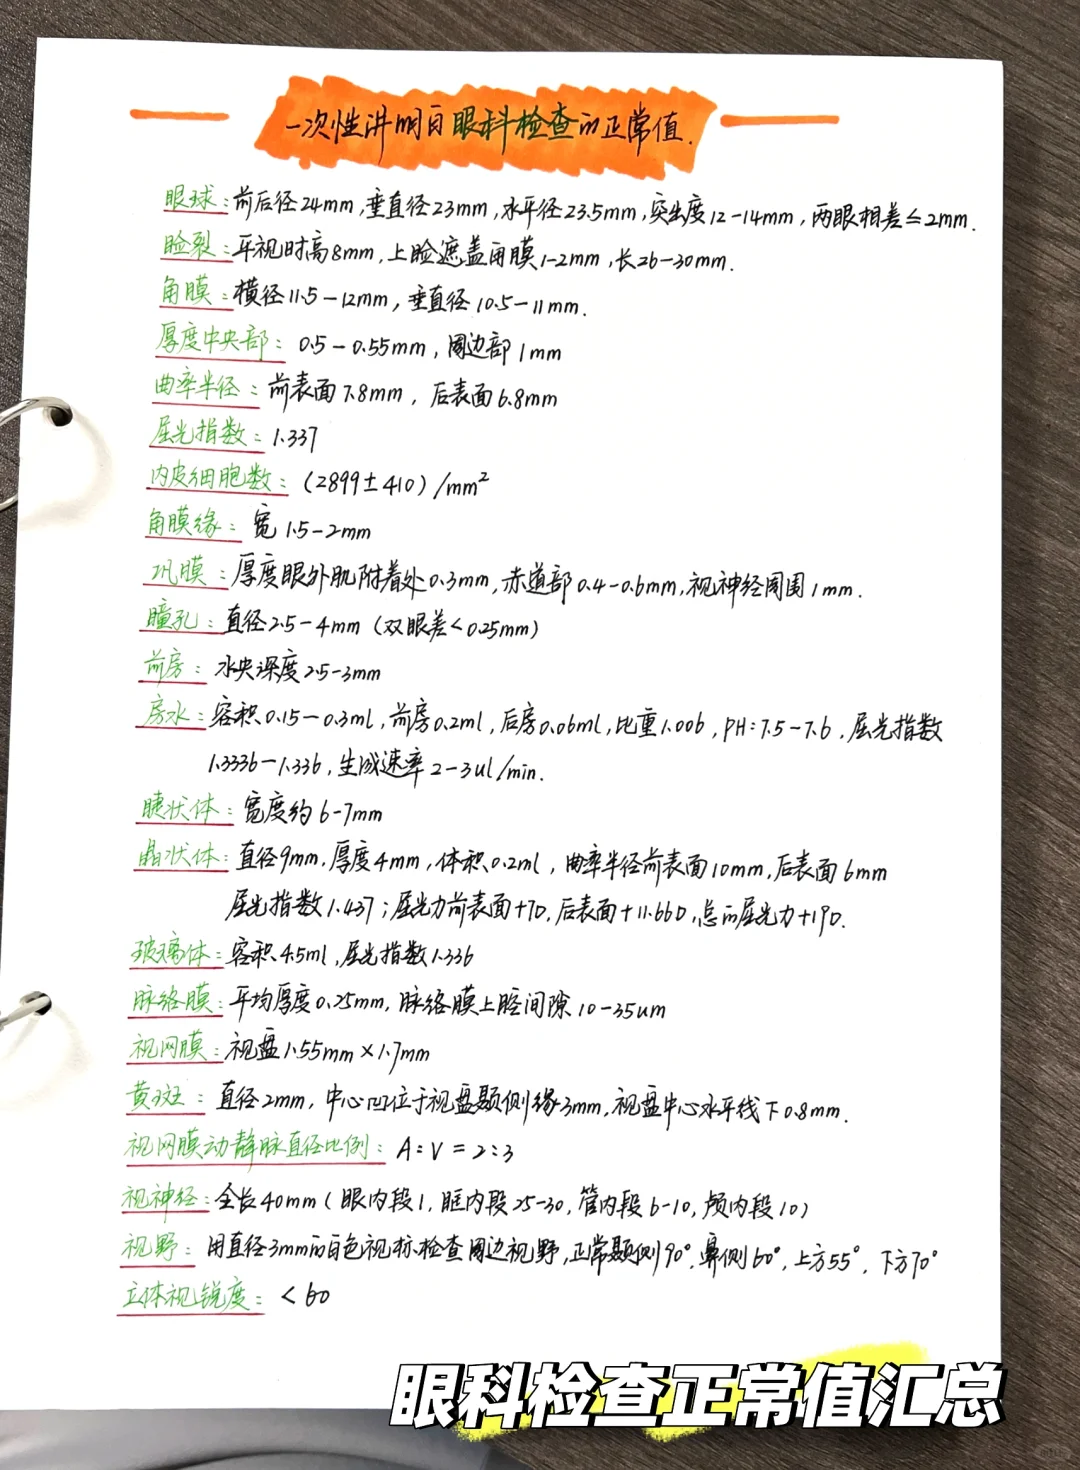 一次性讲明白眼科检查的正常值.
眼球:前后径24mm,垂直径23mm,水平径23.5mm,突出度12-14mm,两眼相差≤2mm.
睑裂:平视时高8mm,上睑遮盖角膜1-2mm,长26-30mm.
角膜:横径11.5-12mm,垂直径10.5-11mm.
厚度中央部:0.5-0.55mm,周边部1mm
曲率半径:前表面7.8mm,后表面6.8mm
屈光指数:1.337
内皮细胞数:(2899±410)/mm²
角膜缘:宽1.5-2mm
巩膜:厚度眼外肌附着处0.3mm,赤道部0.4-0.6mm,视神经周围1mm.
瞳孔:直径2.5-4mm(双眼差<0.25mm)
前房:水央深度2.5-3mm
房水:容积0.15-0.3ml,前房0.2ml,后房0.06ml,比重1.006,PH:7.5-7.6,屈光指数
1.3336-1.336,生成速率2-3ul/min.
睫状体:宽度约6-7mm
晶状体:直径9mm,厚度4mm,体积0.2ml,曲率半径前表面10mm,后表面6mm
屈光指数1.437;屈光力前表面+7D,后表面+11.66D,总的屈光力+19D.
玻璃体:容积4.5ml,屈光指数1.336
脉络膜:平均厚度0.25mm,脉络膜上腔间隙10-35um
视网膜:视盘1.55mm×1.7mm
黄斑:直径2mm,中心凹位于视盘颞侧缘3mm,视盘中心水平线下0.8mm.
视网膜动静脉直径比例:A:V=2:3
视神经:全长40mm(眼内段1,眶内段25-30,管内段6-10,颅内段10)
视野:用直径3mm的白色视标检查周边视野,正常颞侧90°,鼻侧60°,上方55°,下方70°
立体视锐度:<60
眼科检查正常值汇总